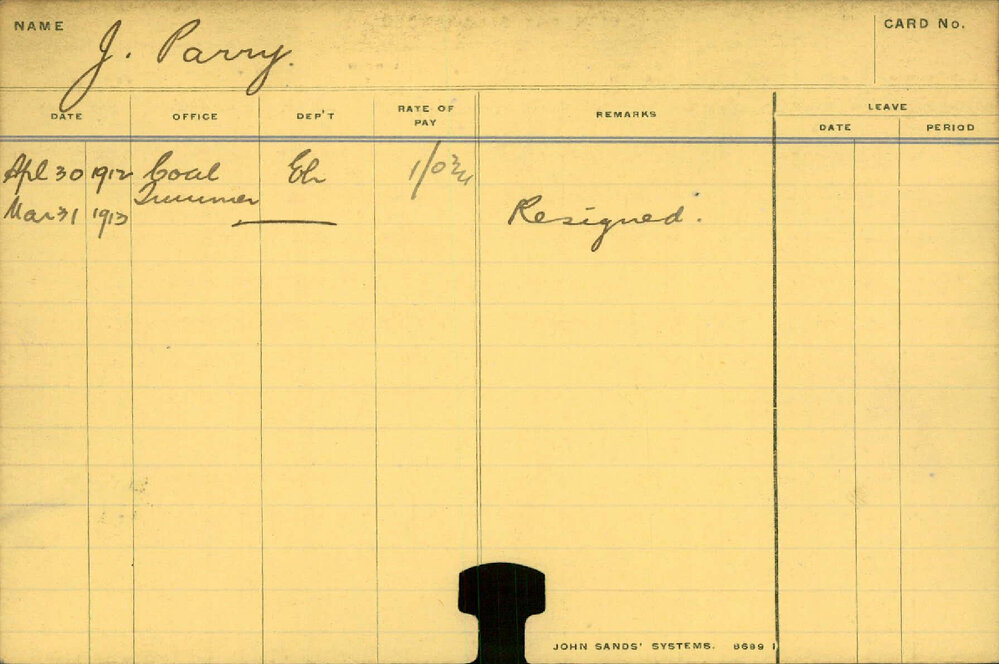 NAME J. Parry. CARD No.
DATE OFFICE DEP'T RATE OF PAY REMARKS LEAVE
DATE PERIOD
Apl 30 1912 Coal Trimmer El 1/0¾
Mar 31 1913 Resigned.
JOHN SANDS' SYSTEMS. 8699